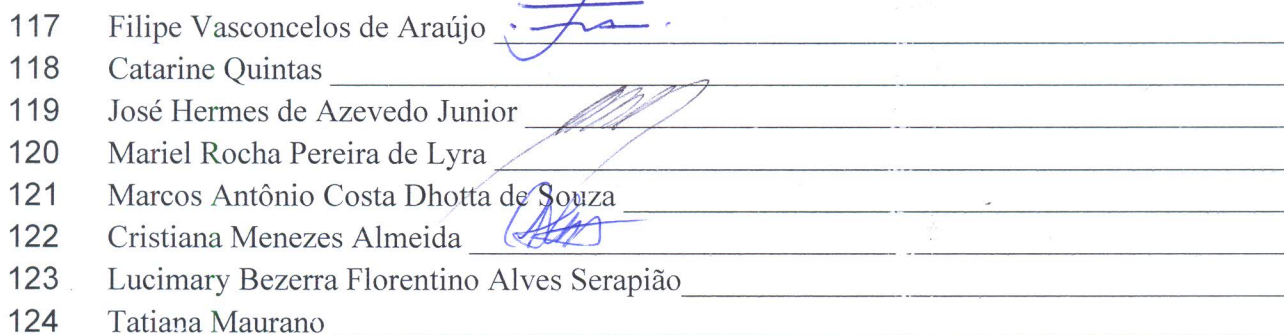 117 Filipe Vasconcelos de Araújo
118 Catarine Quintas
119 José Hermes de Azevedo Junior
120 Mariel Rocha Pereira de Lyra
121 Marcos Antônio Costa Dhotta de Souza
122 Cristiana Menezes Almeida
123 Lucimary Bezerra Florentino Alves Serapião
124 Tatiana Maurano